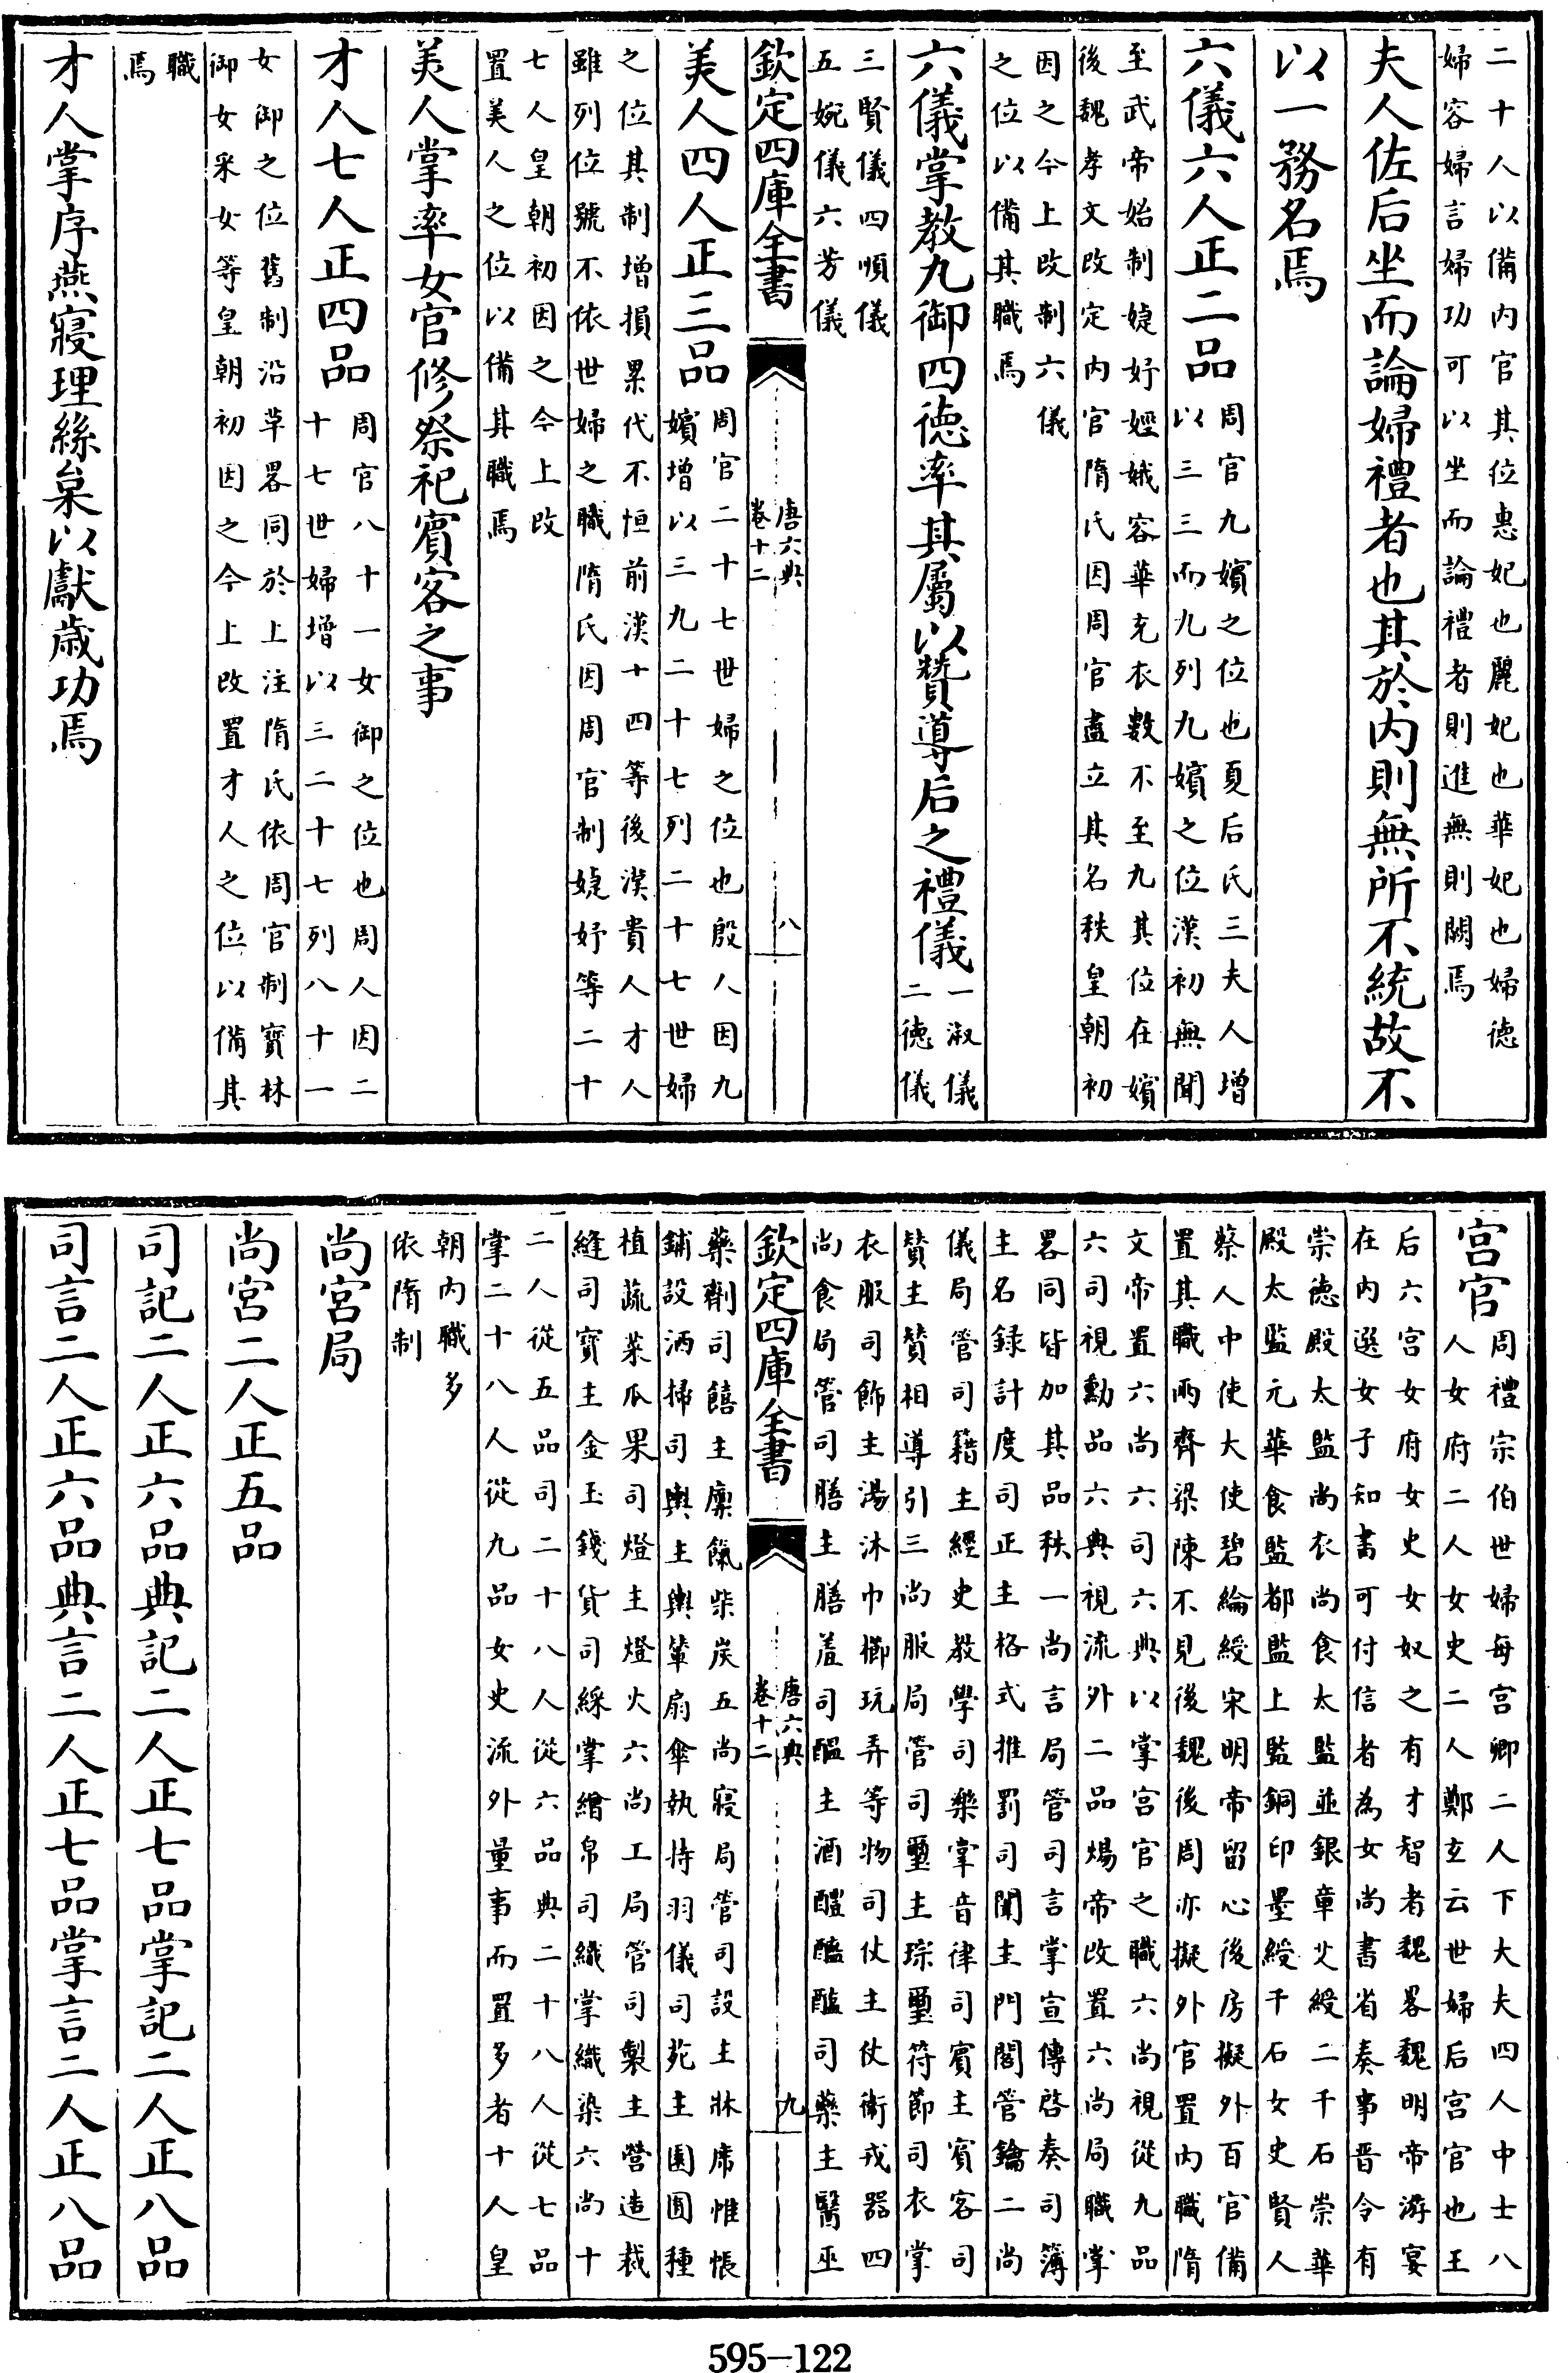 二十人以備内官其位惠妃也麗妃也華妃也婦德
婦容婦言婦功可以坐而論禮者則進無則闕焉
夫人佐后坐而論婦禮者也其於内則無所不統故不
以一務名焉
六儀六人正二品
周官九嬪之位也夏后氏三夫人增
以三三而九列九嬪之位漢初無聞
至武帝始制婕妤娙娥容華充衣數不至九其位在嬪
後魏孝文改定内官隋氏因周官盡立其名秩皇朝初
因之今上改制六儀
之位以備其職焉
六儀掌教九御四德率其屬以贊導后之禮儀
一淑儀
二德儀
三賢儀四順儀
五婉儀六芳儀
欽定四庫全書
唐六典
卷十二
八
美人四人正三品
周官二十七世婦之位也殷人因九
嬪增以三九二十七列二十七世婦
之位其制增損累代不恒前漢十四等後漢貴人才人
雖列位號不依世婦之職隋氏因周官制婕妤等二十
七人皇朝初因之今上改
置美人之位以備其職焉
美人掌率女官修祭祀賓客之事
才人七人正四品
周官八十一女御之位也周人因二
十七世婦增以三二十七列八十一
女御之位舊制沿革畧同於上注隋氏依周官制寶林
御女采女等皇朝初因之今上改置才人之位以備其
職
焉
才人掌序燕寢理絲枲以獻歳功焉
宫官
周禮宗伯世婦每宫卿二人下大夫四人中士八
人女府二人女史二人鄭玄云世婦后宫官也王
后六宫女府女史女奴之有才智者魏畧魏明帝游宴
在内選女子知書可付信者為女尚書省奏事晉令有
崇德殿太監尚衣尚食太監並銀章艾綬二千石崇華
殿太監元華食監都監上監銅印墨綬千石女史賢人
蔡人中使大使碧綸綬宋明帝留心後房擬外百官備
置其職兩齊梁陳不見後魏後周亦擬外官置内職隋
文帝置六尚六司六典以掌宫官之職六尚視從九品
六司視勳品六典視流外二品煬帝改置六尚局職掌
畧同皆加其品秩一尚言局管司言掌宣傳啓奏司簿
主名録計度司正主格式推罰司闈主門閤管鑰二尚
儀局管司籍主經史教學司樂掌音律司賓主賓客司
贊主贊相導引三尚服局管司璽主琮璽符節司衣掌
衣服司飾主湯沐巾櫛玩弄等物司仗主仗衛戎器四
尚食局管司膳主膳羞司醖主酒醴醯醢司藥主醫巫
欽定四庫全書
唐六典
卷十二
九
藥劑司饎主廪餼柴炭五尚寢局管司設主牀席帷帳
鋪設洒掃司輿主輿輦扇傘執持羽儀司苑主園圃種
植蔬菜瓜果司燈主燈火六尚工局管司製主營造裁
縫司寶主金玉錢貨司綵掌繒帛司織掌織染六尚十
二人從五品司二十八人從六品典二十八人從七品
掌二十八人從九品女史流外量事而置多者十人皇
朝内職多
依隋制
尚宫局
尚宫二人正五品
司記二人正六品典記二人正七品掌記二人正八品
司言二人正六品典言二人正七品掌言二人正八品
595-122